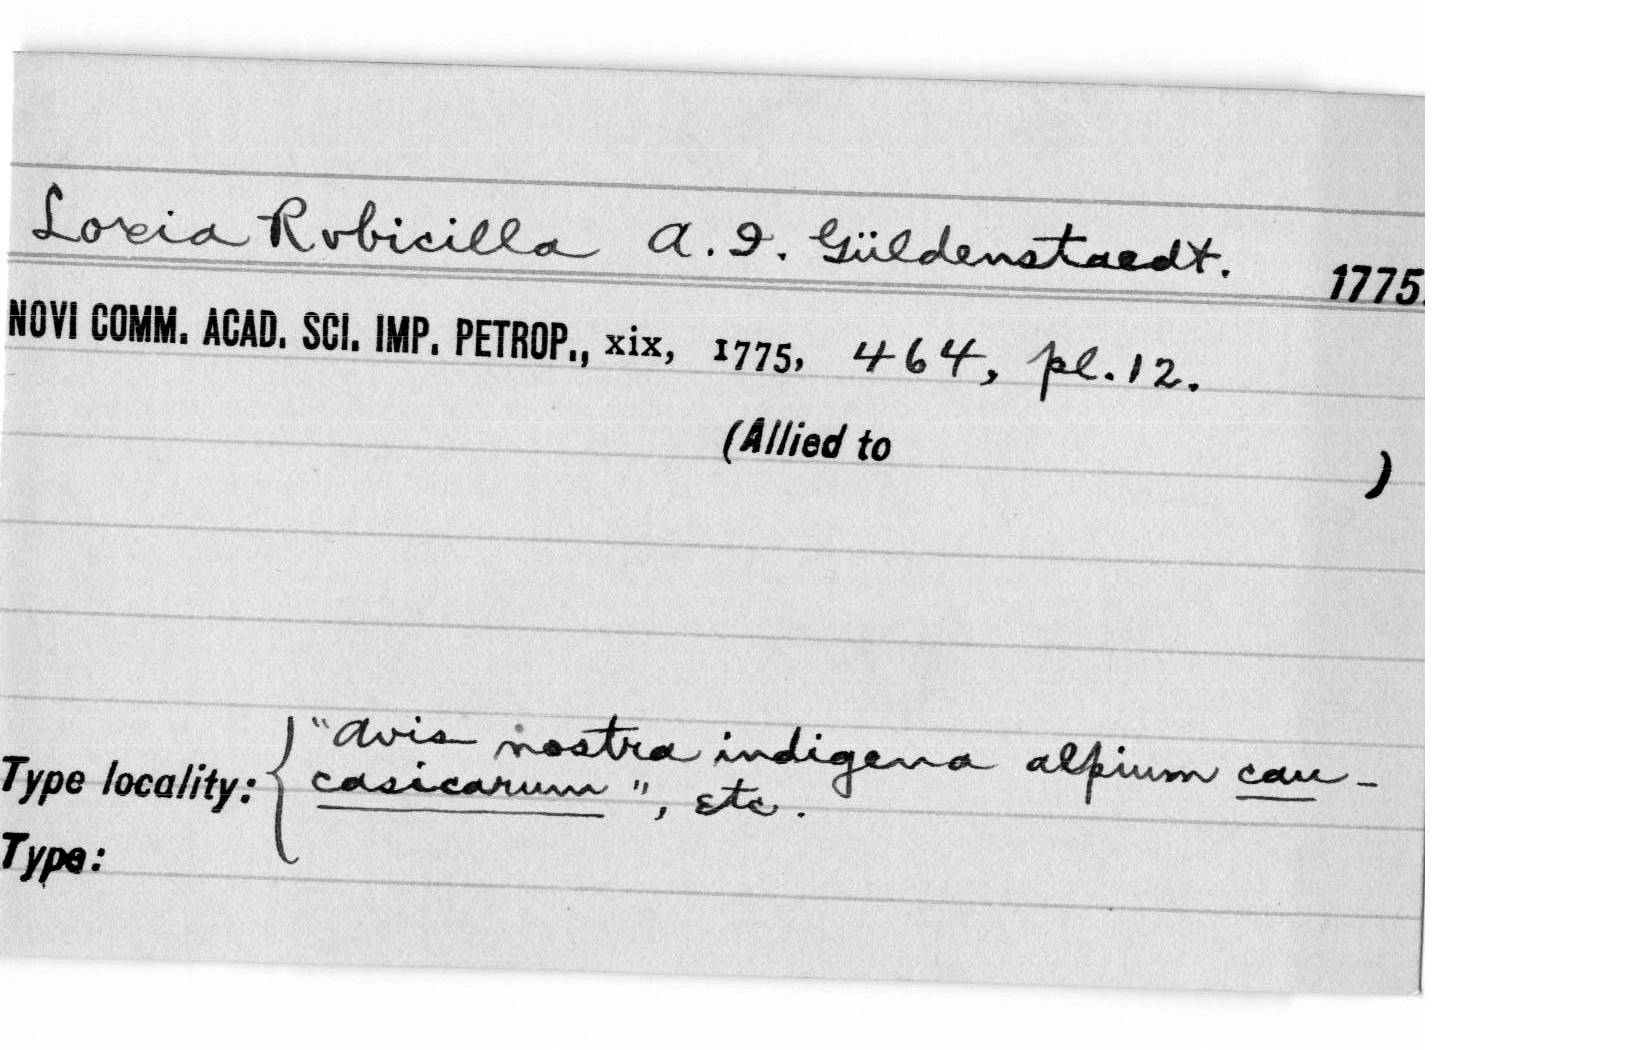 Loxia Rvbicilla A. I. Güldenstaedt. 1775.
NOVI COMM. ACAD. SCI. IMP. PETROP., xix, 1775, 464, pl. 12.
(Allied to )
"Avis nostra indigena alpium cau-
Type locality: casicarum", etc.
Type: